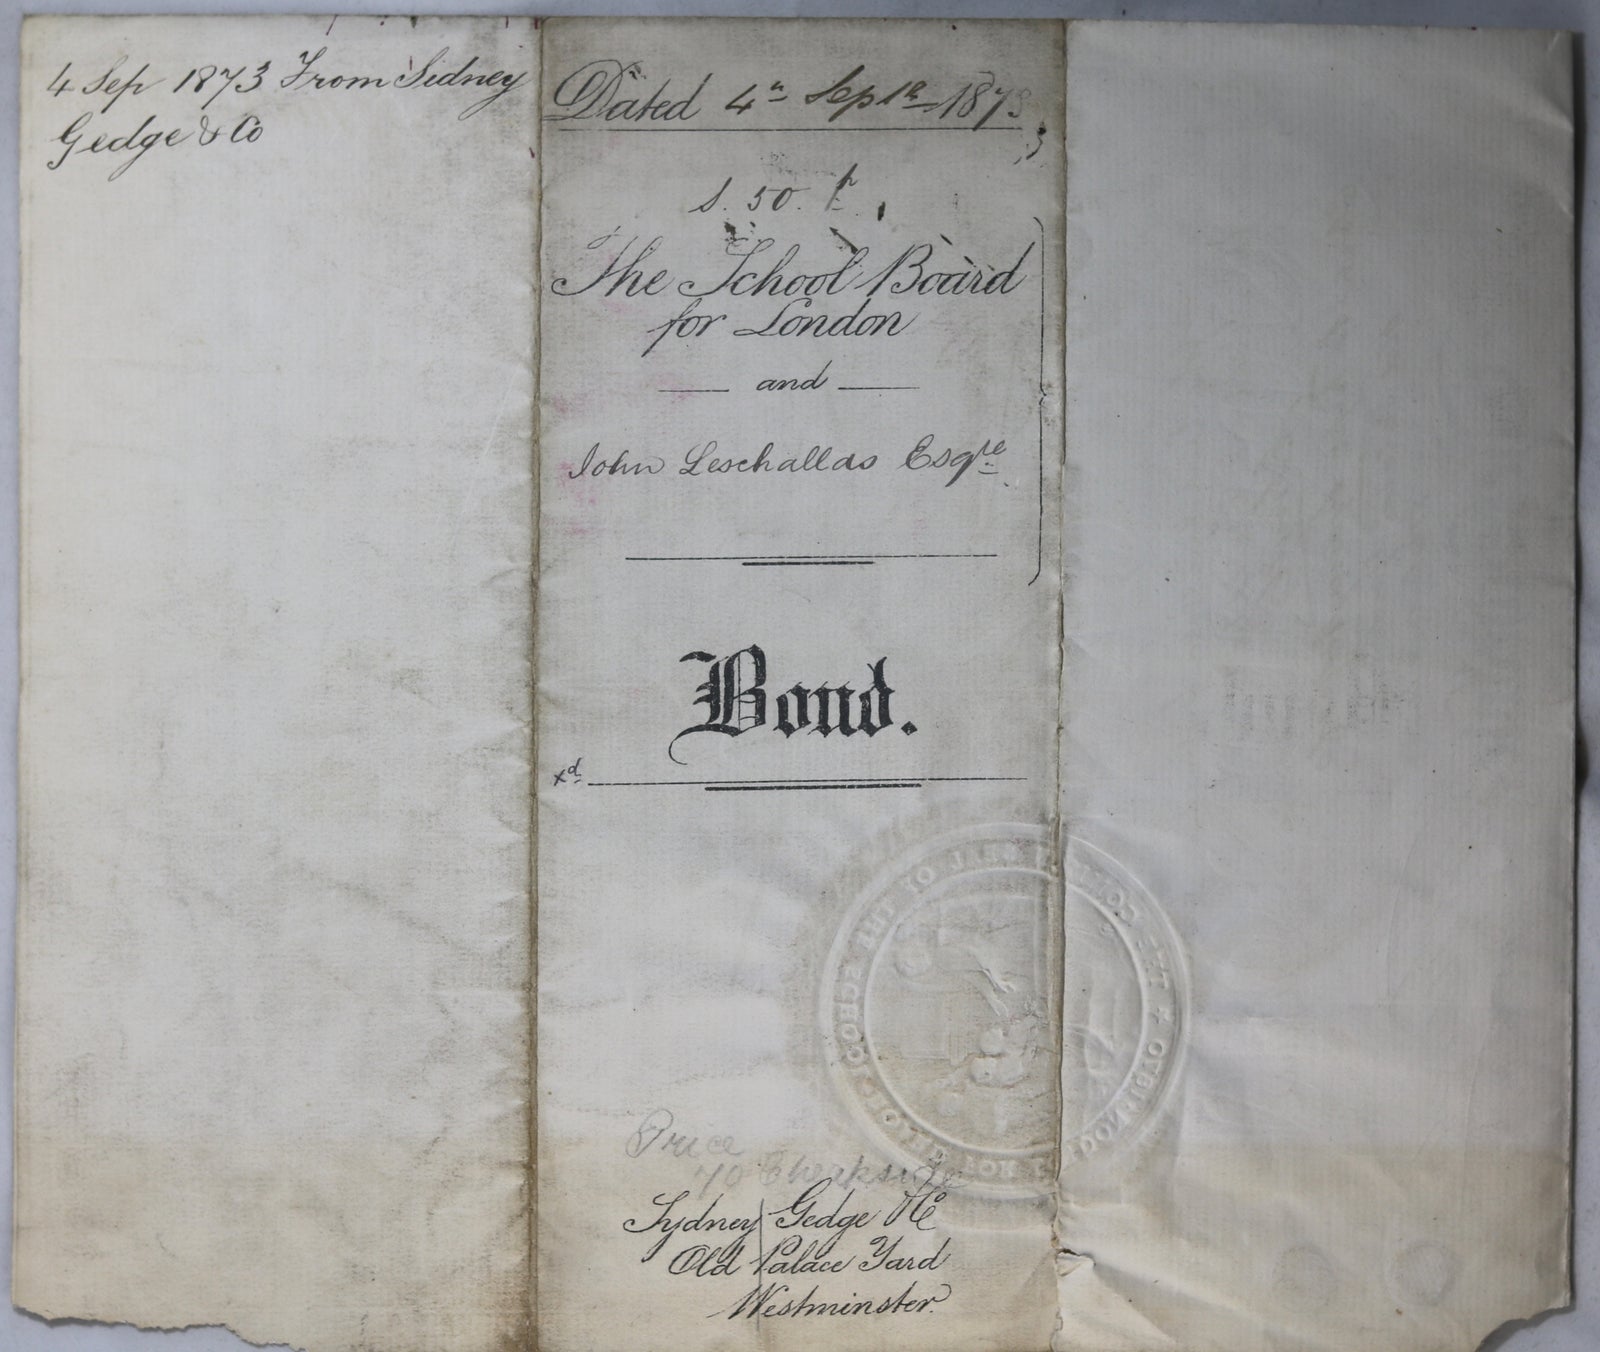 4 Sep 1873 From Sidney
Gedge & Co
Dated 4th Septr 1873
S. 50.
The School Board
for London
and
John Leschallas Esqre
Bond.
xd
Price
70 Cheapside
Sydney Gedge & Co
Old Palace Yard
Westminster.